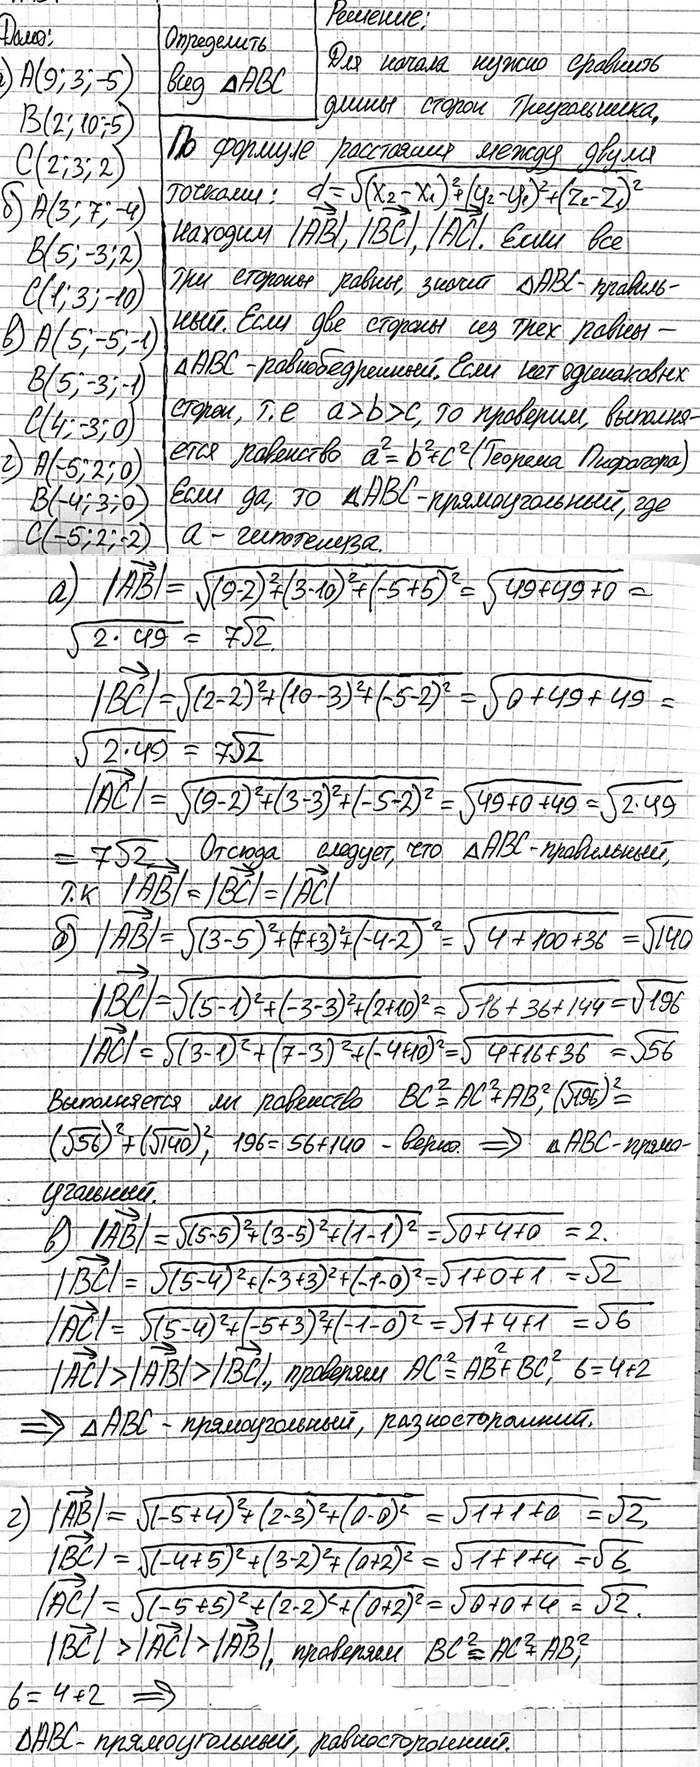 Дано:
а) A(9; 3; -5)
B(2; 10; -5)
C(2; 3; 2)
б) A(3; 7; -4)
B(5; -3; 2)
C(1; 3; -10)
в) A(5; -5; -1)
B(5; -3; -1)
C(4; -3; 0)
г) A(-5; 2; 0)
B(-4; 3; 0)
C(-5; 2; -2)
Определить
вид △ABC
Решение:
Для начала нужно сравнить
длины сторон треугольника,
По формуле расстояния между двумя
точками: d=√((x₂-x₁)²+(y₂-y₁)²+(z₂-z₁)²)
находим |AB|, |BC|, |AC|. Если все
три стороны равны, значит △ABC-правиль-
ный. Если две стороны из трех равны —
△ABC-равнобедренный. Если нет одинаковых
сторон, т.е a>b>c, то проверим, выполня-
ется равенство a²=b²+c² (Теорема Пифагора)
Если да, то △ABC-прямоугольный, где
a - гипотенуза.
а) |AB|=√((9-2)²+(3-10)²+(-5+5)²)=√(49+49+0)=
√(2·49) = 7√2.
|BC|=√((2-2)²+(10-3)²+(-5-2)²)=√(0+49+49)=
√(2·49) = 7√2
|AC|=√((9-2)²+(3-3)²+(-5-2)²)=√(49+0+49)=√(2·49)
= 7√2. Отсюда следует, что △ABC-правильный,
т.к |AB|=|BC|=|AC|
б) |AB|=√((3-5)²+(7+3)²+(-4-2)²)=√(4+100+36)=√140
|BC|=√((5-1)²+(-3-3)²+(2+10)²)=√(16+36+144)=√196
|AC|=√((3-1)²+(7-3)²+(-4+10)²)=√(4+16+36)=√56
Выполняется ли равенство BC²=AC²+AB², (√196)²=
(√56)²+(√140)², 196=56+140 - верно. ⇒ △ABC-прямо-
угольный.
в) |AB|=√((5-5)²+(3-5)²+(1-1)²)=√(0+4+0)=2.
|BC|=√((5-4)²+(-3+3)²+(-1-0)²)=√(1+0+1)=√2
|AC|=√((5-4)²+(-5+3)²+(-1-0)²)=√(1+4+1)=√6
|AC|>|AB|>|BC|., проверяем AC²=AB²+BC², 6=4+2
⇒ △ABC - прямоугольный, разносторонний.
г) |AB|=√((-5+4)²+(2-3)²+(0-0)²)=√(1+1+0)=√2,
|BC|=√((-4+5)²+(3-2)²+(0+2)²)=√(1+1+4)=√6,
|AC|=√((-5+5)²+(2-2)²+(0+2)²)=√(0+0+4)=√2.
|BC|>|AC|>|AB|, проверяем BC²=AC²+AB²,
6=4+2 ⇒
△ABC-прямоугольный, равносторонний.